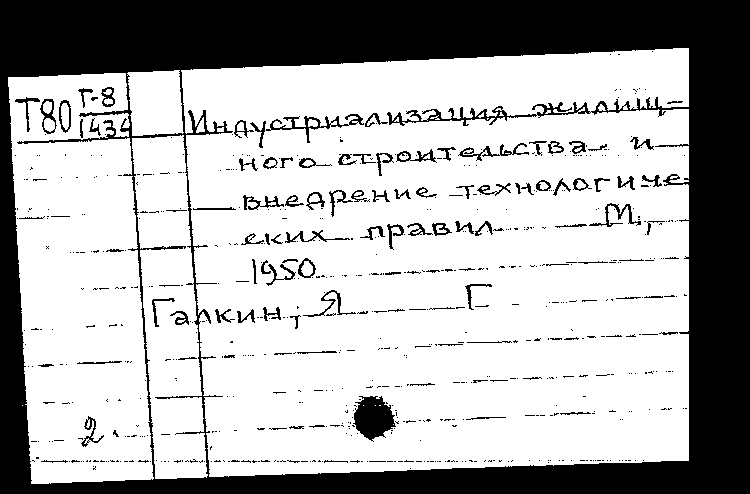 Т80 Г-8
1434
Индустриализация жилищ-
ного строительства и
внедрение технологиче-
еких правил М,
1950
Галкин, Я Г
2.